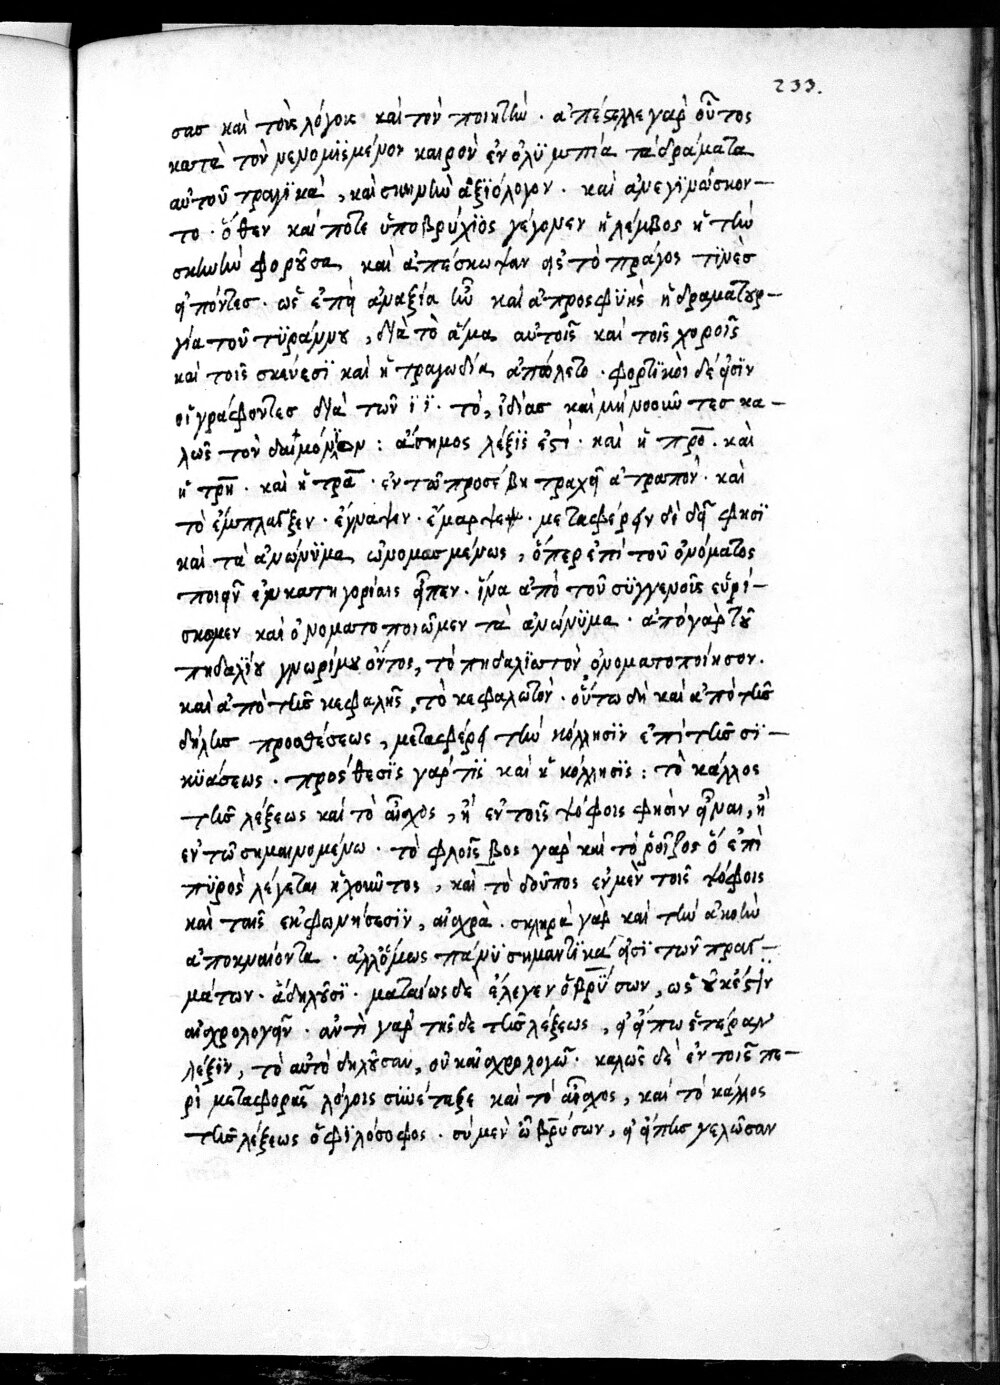 233.
σας καὶ τοὺς λόγους καὶ τὸν ποιητὴν · ἀπέστελλε γὰρ οὗτος
κατὰ τὸν νενομϊσμένον καιρὸν ἐν ὀλϋμπία τὰ δράματα
αὐτοῦ τραγϊκὰ, καὶ σκηνὴν ἀξϊόλογον · καὶ ἀνεγϊνώσκον–
το · ὅθεν καί ποτε ὑποβρύχϊος γέγονεν ἡ λέμβος ἡ τὴν
σκηνὴν φοροῦσα, καὶ ἀπέσκωψαν εἰς τὸ πράγος τϊνὲς
εἰπόντες · ὡς ἐπεὶ ἀναξία ἦν καὶ ἀπροσφϋὴς ἡ δραματουρ–
γία τοῦ τϋράννου, διὰ τὸ ἅμα αὐτοῖς καὶ τοῖς χοροῖς
καὶ τοῖς σκένεσϊ καὶ ἡ τραγωδία ἀπώλετο · φορτϊκοὶ δέ εἰσϊν
οἱ γράφοντες διὰ τῶν ϊ ϊ · τὸ, ἰδίας καὶ μὴ νοοῦντες κα–
λῶς τὸν δαιμόνϊον : ἄσημος λέξϊς ἐστί · καὶ ἡ προ · καὶ
ἡ τρη · καὶ ἡ τρα · ἐν τῶ προσέβη τραχεῖ ἀτραπόν · καὶ
τὸ ἔμπλαξεν · ἔγναψεν · ἔμαρψεν · μεταφέρειν δὲ δεῖ φησϊ
καὶ τὰ ἀνώνϋμα ὠνομασμένως, ὅπερ ἐπὶ τοῦ ὀνόματος
ποιεῖν ἐν κατηγορίαις εἶπεν · ἵνα ἀπὸ τοῦ σϋγγενοῦς εὑρί–
σκομεν καὶ ὀνοματοποιῶμεν τὰ ἀνώνϋμα · ἀπὸ γὰρ τοῦ
πηδαλίου γνωρίμου ὄντος, τὸ πηδαλϊωτὸν ὀνοματοποίησον ·
καὶ ἀπὸ τῆς κεφαλῆς, τὸ κεφαλωτόν · οὕτω δὴ καὶ ἀπὸ τῆς
δήλης προσθέσεως, μεταφέρει τὴν κόλλησϊν ἐπὶ τῆς σϊ–
κϋάσεως · πρόσθεσϊς γάρ τϊς καὶ ἡ κόλλησϊς : τὸ κάλλος
τῆς λέξεως καὶ τὸ αἶσχος, ἢ ἐν τοῖς ψόφοις φησὶν εἶναι, ἢ
ἐν τῶ σημαινομένω · τὸ φλοῖσβος γὰρ καὶ τὸ ῥοῖζος ὃ ἐπὶ
πϋρὸς λέγεται ἠχοῦντος, καὶ τὸ δοῦπος ἐν μὲν τοῖς ψόφοις
καὶ ταῖς ἐκφωνήσεσϊν, αἰσχρὰ · σκληρὰ γὰρ καὶ τὴν ἀκοὴν
ἀποκναίοντα · ἀλλ' ὅμως πάνϋ σημαντϊκά εἰσϊ τῶν πραγ–
μάτων · ἃ δηλοῦσϊ · ματαίως δὲ ἔλεγεν ὁ βρϋσων, ὡς οὐκ ἔστιν
αἰσχρολογεῖν · ἀντὶ γὰρ τῆς δε τῆς λέξεως, εἰ εἴπω ἑτέραν
λέξϊν, τὸ αὐτὸ δηλοῦσαν, οὐκ αἰσχρολογῶ · καλῶς δὲ ἐν τοῖς πε–
ρὶ μεταφορᾶς λόγοις σϋνέταξε καὶ τὸ αἶσχος, καὶ τὸ κάλλος
τῆς λέξεως ὁ φϊλόσοφος · σὺ μὲν ὦ βρύσων, εἰ εἴπης γελῶσαν